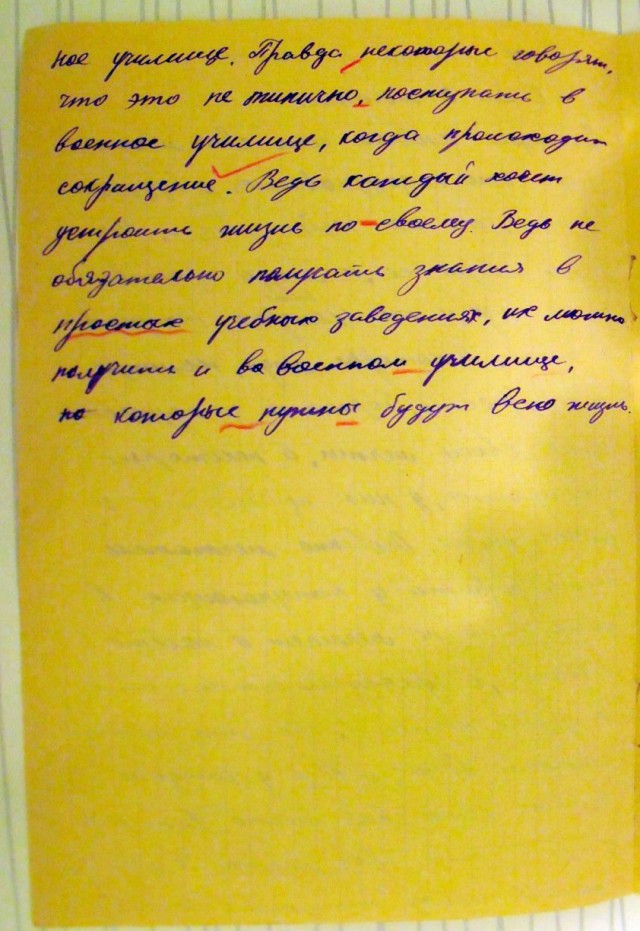 ное училище. Правда некоторые говорят,
что это не типично, поступать в
военное училище, когда происходит
сокращение. Ведь каждый хочет
устроить жизнь по-своему. Ведь не
обязательно получать знания в
простых учебных заведениях, их можно
получить и в военном училище,
но которые нужны будут всю жизнь.